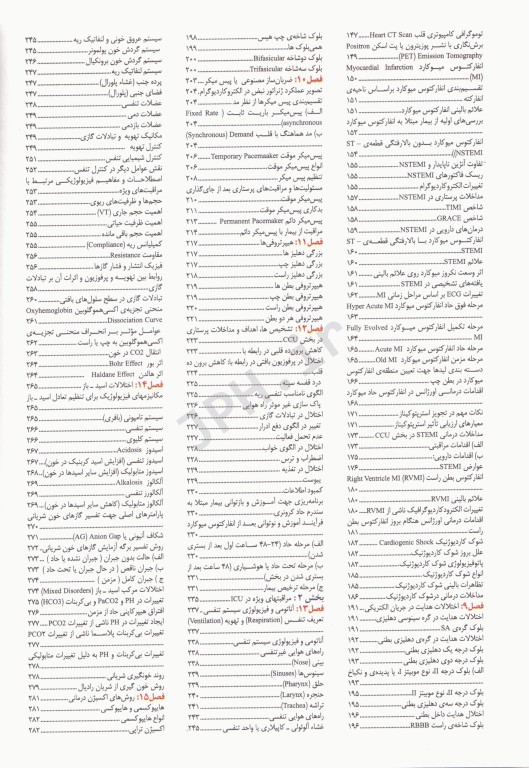 توموگرافی کامپیوتری قلب Heart CT Scan ۱۴۷
برش‌نگاری با نشر پوزیترون یا پت اسکن Positron
Emission Tomography (PET) ۱۴۹
انفارکتوس میوکارد Myocardial Infarction
(MI) ۱۵۰
تقسیم‌بندی انفارکتوس میوکارد براساس ناحیه‌ی
انفارکته ۱۵۱
علائم بالینی انفارکتوس میوکارد ۱۵۱
بررسی‌های اولیه از بیمار مبتلا به انفارکتوس میوکارد
۱۵۲
انفارکتوس میوکارد بدون بالارفتگی قطعه‌ی ST –
(NSTEMI) ۱۵۴
تفاوت آنژین ناپایدار و NSTEMI ۱۵۵
ریسک فاکتورهای NSTEMI ۱۵۵
تغییرات الکتروکاردیوگرام ۱۵۵
مداخلات پرستاری در NSTEMI ۱۵۷
شاخص TIMI ۱۵۸
شاخص GRACE ۱۵۸
درمان‌های دارویی در NSTEMI ۱۵۹
انفارکتوس میوکارد با بالارفتگی قطعه‌ی ST –
STEMI ۱۶۰
علائم STEMI ۱۶۰
اثر وسعت نکروز میوکارد روی علائم بالینی ۱۶۱
یافته‌های تشخیصی در STEMI ۱۶۱
تغییرات ECG بر اساس مراحل زمانی MI ۱۶۲
مرحله فوق حاد انفارکتوس میوکارد Hyper Acute MI
۱۶۳
مرحله تکمیل انفارکتوس میوکارد Fully Evolved
MI ۱۶۴
مرحله حاد انفارکتوس میوکارد Acute MI ۱۶۵
مرحله مزمن انفارکتوس میوکارد Old MI ۱۶۵
دسته بندی لیدها جهت تعیین منطقه‌ی انفارکتوس
میوکارد در بطن چپ ۱۶۶
اقدامات درمانی اورژانس در انفارکتوس حاد میوکارد
۱۶۸
نکات مهم در تجویز استرپتوکیناز ۱۷۱
معیارهای ارزیابی تأثیر استرپتوکیناز ۱۷۱
مداخلات درمانی STEMI در بخش CCU ۱۷۳
الف) اقدامات مراقبتی ۱۷۳
ب) اقدامات دارویی ۱۷۵
عوارض STEMI ۱۷۶
انفارکتوس بطن راست Right Ventricle MI (RVMI)
۱۸۰
علائم بالینی RVMI ۱۸۰
تغییرات الکتروکاردیوگرافیک ناشی از RVMI ۱۸۰
اقدامات درمانی اورژانس هنگام بروز انفارکتوس بطن
راست ۱۸۱
شوک کاردیوژنیک Cardiogenic Shock ۱۸۲
علل بروز شوک کاردیوژنیک ۱۸۲
پاتوفیزیولوژی شوک کاردیوژنیک ۱۸۲
انواع شوک کاردیوژنیک ۱۸۵
تظاهرات بالینی شوک کاردیوژنیک ۱۸۵
مداخلات درمانی درشوک کاردیوژنیک ۱۸۶
فصل ۹: اختلالات هدایت در جریان الکتریکی ۱۹۱
اختلالات هدایت در گره سینوسی دهلیزی ۱۹۱
بلوک گره‌ی SA ۱۹۱
اختلالات هدایت در گره‌ی دهلیزی بطنی ۱۹۲
بلوک درجه یک دهلیزی بطنی ۱۹۲
بلوک درجه دوی دهلیزی بطنی ۱۹۳
الف) بلوک درجه II، نوع موبیتز I، یا پدیده‌ی و نکباخ
۱۹۳
بلوک درجه II، نوع موبیتز II ۱۹۵
بلوک درجه سه‌ی دهلیزی بطنی ۱۹۵
اختلال هدایت داخل بطنی ۱۹۶
بلوک شاخه‌ی راست RBBB ۱۹۶
بلوک شاخه‌ی چپ هیس ۱۹۸
همی‌بلوک ها ۱۹۹
بلوک دوشاخه Bifasicular ۲۰۰
بلوک سه‌شاخه Trifasicular ۲۰۰
فصل۱۰: ضربان‌ساز مصنوعی یا پیس میکر ۲۰۳
تصویر عملکرد ژنراتور نبض در الکتروکاردیوگرام ۲۰۴
تقسیم‌بندی پیس میکرها از نظر مد ۲۰۴
الف) پیس‌میکر با ریت ثابت (Fixed Rate
asynchronous) ۲۰۴
ب) مد هماهنگ با قلب (Synchronous) Demand
۲۰۴
پیس‌میکر موقت Temporary Pacemaker ۲۰۶
انواع پیس‌میکر موقت ۲۰۶
تنظیم پیس میکر ۲۰۸
مسئولیت‌ها و مراقبت‌های پرستاری بعد از جای‌گذاری
پیس‌میکر موقت ۲۱۰
بدکاری پیس‌میکر موقت ۲۱۱
پیس‌میکر دائم Permanent Pacemaker ۲۱۳
مراقبت از بیمار با پیس‌میکر دائم ۲۱۴
فصل ۱۱: هیپرتروفی‌ها ۲۱۷
بزرگی دهلیز ها ۲۱۷
بزرگی دهلیز چپ ۲۱۷
بزرگی دهلیز راست ۲۱۸
هیپرتروفی بطن ها ۲۱۹
هیپرتروفی بطن چپ ۲۱۹
هیپرتروفی بطن راست ۲۲۰
هیپرتروفی هر دو بطن ۲۲۱
فصل۱۲: تشخیص ها، اهداف و مداخلات پرستاری
در بخش CCU ۲۲۳
کاهش برون‌ده قلبی در رابطه با ۲۲۳
اختلال در پرفوزیون بافتی در رابطه با: کاهش برون ده
۲۲۴
درد قفسه سینه ۲۲۵
الگوی نامناسب تنفسی ریه ۲۲۵
پاک سازی غیر موثر راه هوایی ۲۲۶
اختلال در تبادلات گازی ۲۲۶
تغییر در الگوی دفع ادرار ۲۲۷
عدم تحمل فعالیت ۲۲۷
اختلال در الگوی خواب ۲۲۸
اضطراب و ترس ۲۲۸
اختلال در تغذیه ۲۲۹
یبوست ۲۲۹
کمبود اطلاعات ۲۳۰
برنامه‌ریزی جهت آموزش و بازتوانی بیمار مبتلا به
سندرم حاد کرونری ۲۳۰
فرآیند آموزش و نوتوانی بعد از انفارکتوس میوکارد
۲۳۰
الف) مرحله حاد (۲۴-۴۸ ساعت اول بعد از بستری
شدن) ۲۳۰
ب) مرحله تحت حاد یا هوشیاری (۴۸ ساعت بعد از
بستری شدن در بخش) ۲۳۱
ج) مرحله ترخیص بیمار ۲۳۱
بخش ۲ : مراقبتهای ویژه در ICU ۲۳۵
فصل۱۳: آناتومی و فیزیولوژی سیستم تنفسی ۲۳۷
تعریف تنفس (Respiration) و تهویه (Ventilation)
۲۳۷
آناتومی و فیزیولوژی سیستم تنفسی ۲۳۸
راه‌های هوایی غیرتنفسی ۲۳۸
بینی (Nose) ۲۳۸
سینوس‌ها (Sinuses) ۲۳۹
حلق (Pharynx) ۲۳۹
حنجره (Larynx) ۲۴۰
تراشه (Trachea) ۲۴۱
راه‌های هوایی تنفسی ۲۴۳
غشاء آلوئولی ـ کاپیلاری یا واحد تنفسی ۲۴۵
سیستم عروق خونی و لنفاتیک ریه ۲۴۵
سیستم گردش خون پولمونر ۲۴۵
سیستم گردش خون برونکیال ۲۴۶
سیستم لنفاتیک ریه ۲۴۷
پرده جنبی (غشاء پلورال) ۲۴۷
فضای جنبی (پلورال) ۲۴۷
عضلات تنفسی ۲۴۸
عضلات دمی ۲۴۹
عضلات بازدمی ۲۴۹
مکانیک تهویه و تبادلات گازی ۲۴۹
کنترل تهویه ۲۴۹
کنترل شیمیایی تنفس ۲۵۱
نقش عوامل دیگر در کنترل تنفس ۲۵۲
اصطلاحات و مفاهیم فیزیولوژیکی مرتبط با
مراقبت‌های ویژه ۲۵۳
حجم‌ها و ظرفیت‌های ریوی ۲۵۳
اهمیت حجم جاری (VT) ۲۵۴
اهمیت ظرفیت حیاتی ۲۵۵
اهمیت حجم باقی مانده ۲۵۵
کمپلیانس ریه (Compliance) ۲۵۵
مقاومت Resistance ۲۵۶
فیزیک انتشار و فشار گازها ۲۵۶
روابط بین تهویه و پرفوزیون و اثرات آن بر تبادلات
گازی ۲۵۸
تبادلات گازی در سطح سلول‌های بافتی ۲۶۰
منحنی تجزیه‌ی اکسی‌هموگلوبین Oxyhemoglobin
Dissociation Curve ۲۶۱
عوامل مؤثر بر انحراف منحنی تجزیه‌ی
اکسی‌هموگلوبین به چپ یا راست ۲۶۲
انتقال CO2 در خون ۲۶۳
اثر بور Bohr Effect ۲۶۴
اثر هالدن Haldane Effect ۲۶۴
فصل۱۴: اختلالات اسید ـ باز ۲۶۵
مکانیزمهای فیزیولوژیک برای تنظیم تعادل اسید ـ باز
۲۶۵
سیستم تامپونی (بافری) ۲۶۵
سیستم تنفسی ۲۶۶
سیستم کلیوی ۲۶۶
اسیدوز Acidosis ۲۶۷
اسیدوز تنفسی (افزایش اسید کربنیک در خون) ۲۶۷
اسیدوز متابولیک (افزایش سایر اسیدها در خون) ۲۶۸
آلکالوز Alkalosis ۲۶۹
آلکالوز تنفسی ۲۶۹
آلکالوز متابولیک (کاهش سایر اسیدها در خون) ۲۶۹
پارامترهای اصلی جهت تفسیر گازهای خون شریانی
۲۷۰
شکاف آنیونی یا Anion Gap (AG) ۲۷۱
روش تفسیر برگه آزمایش گازهای خون شریانی ۲۷۲
الف) حالت بدون جبران ( جبران نشده یا حاد) ۲۷۳
ب) جبران ناقص ( در حال جبران یا تحت حاد ) ۲۷۳
ج ) جبران کامل ( مزمن ) ۲۷۴
اختلالات مرکب اسید ـ باز (Mixed Disorders) ۲۷۴
تغییرات در PH و PaCO2 و بی‌کربنات (HCO3) ۲۷۵
افتراق هیپرکاپنی حاد از مزمن ۲۷۶
ایجاد تغییرات در PH ناشی از تغییرات PCO2 ۲۷۷
تغییرات بی‌کربنات پلاسما ناشی از تغییرات PCOT
۲۷۷
تغییرات بی‌کربنات و PH به دلیل تغییرات متابولیکی
۲۷۸
روند خونگیری شریانی ۲۷۸
روش خون گیری از شریان رادیال ۲۷۹
فصل ۱۵: روش‌های اکسیژن درمانی ۲۸۱
هایپوکسمی و هایپوکسی ۲۸۱
انواع هایپوکسمی ۲۸۲
اکسیژن تراپی ۲۸۲